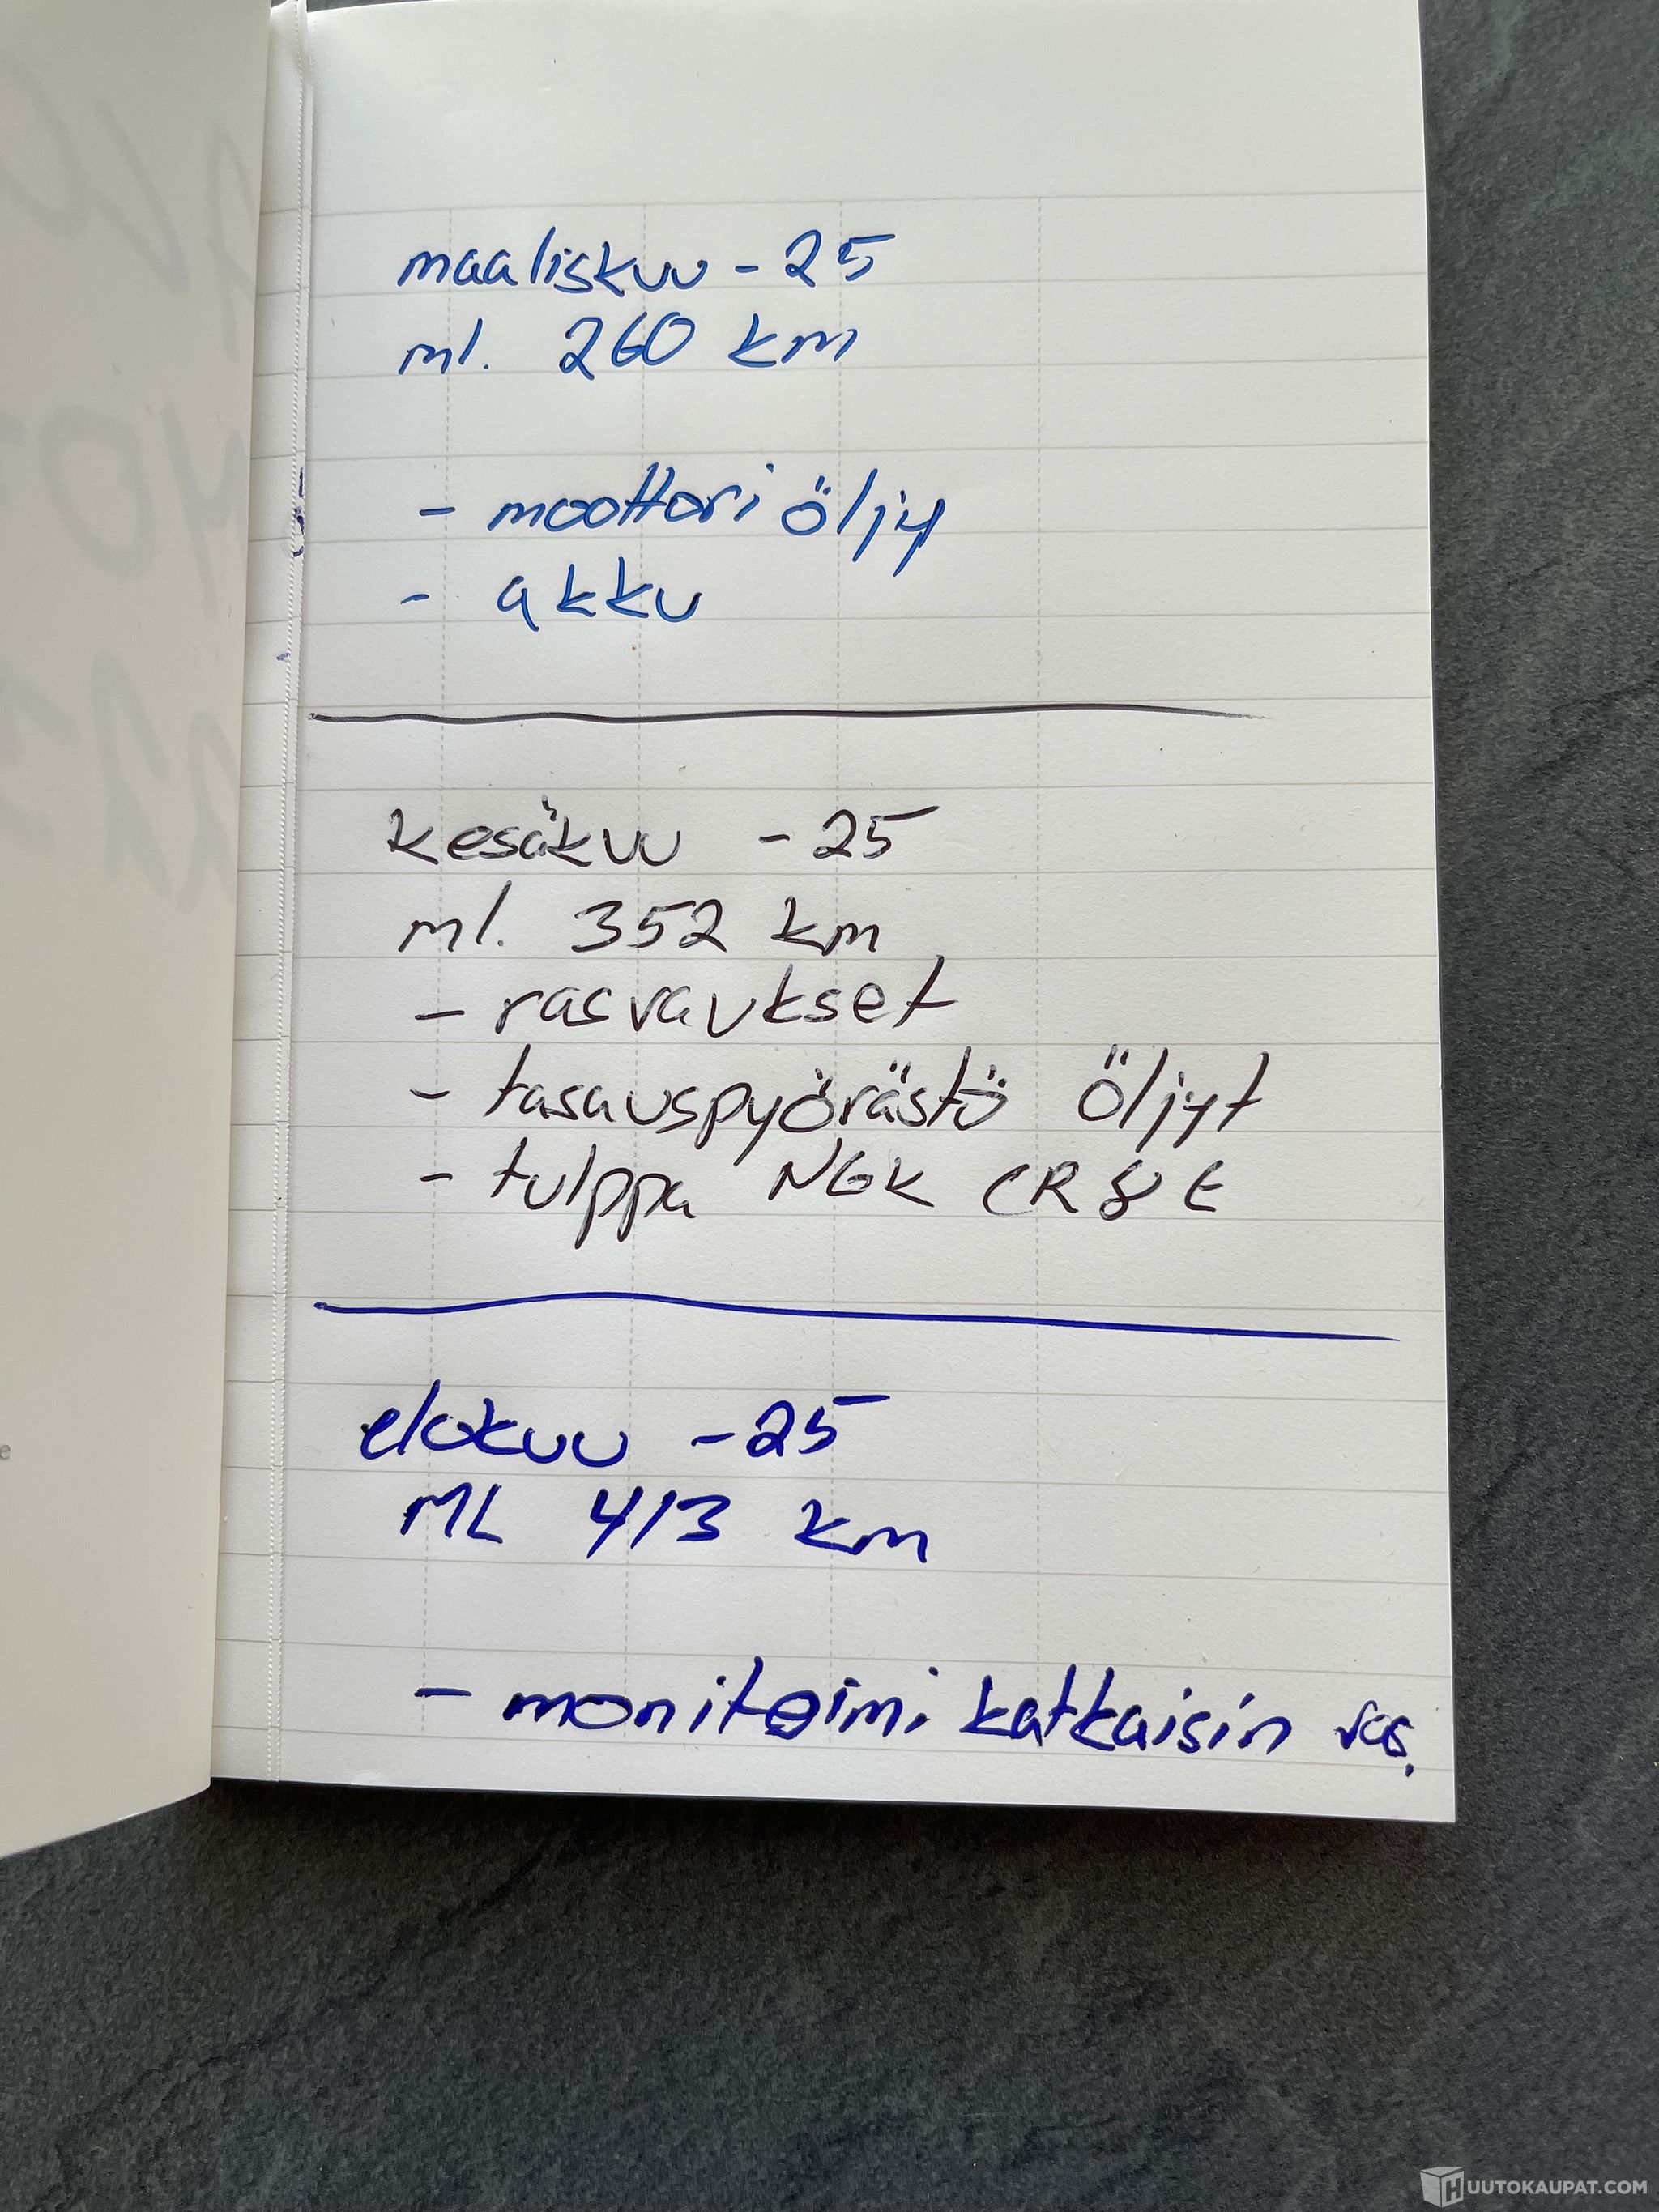 maaliskuu - 25
ml. 260 km
- moottori öljy
- akku
kesäkuu - 25
ml. 352 km
- rasvaukset
- tasauspyörästö öljyt
- tulppa NGK CR8E
elokuu - 25
ML 413 km
- monitoimi katkaisin vas.
HUUTOKAUPAT.COM